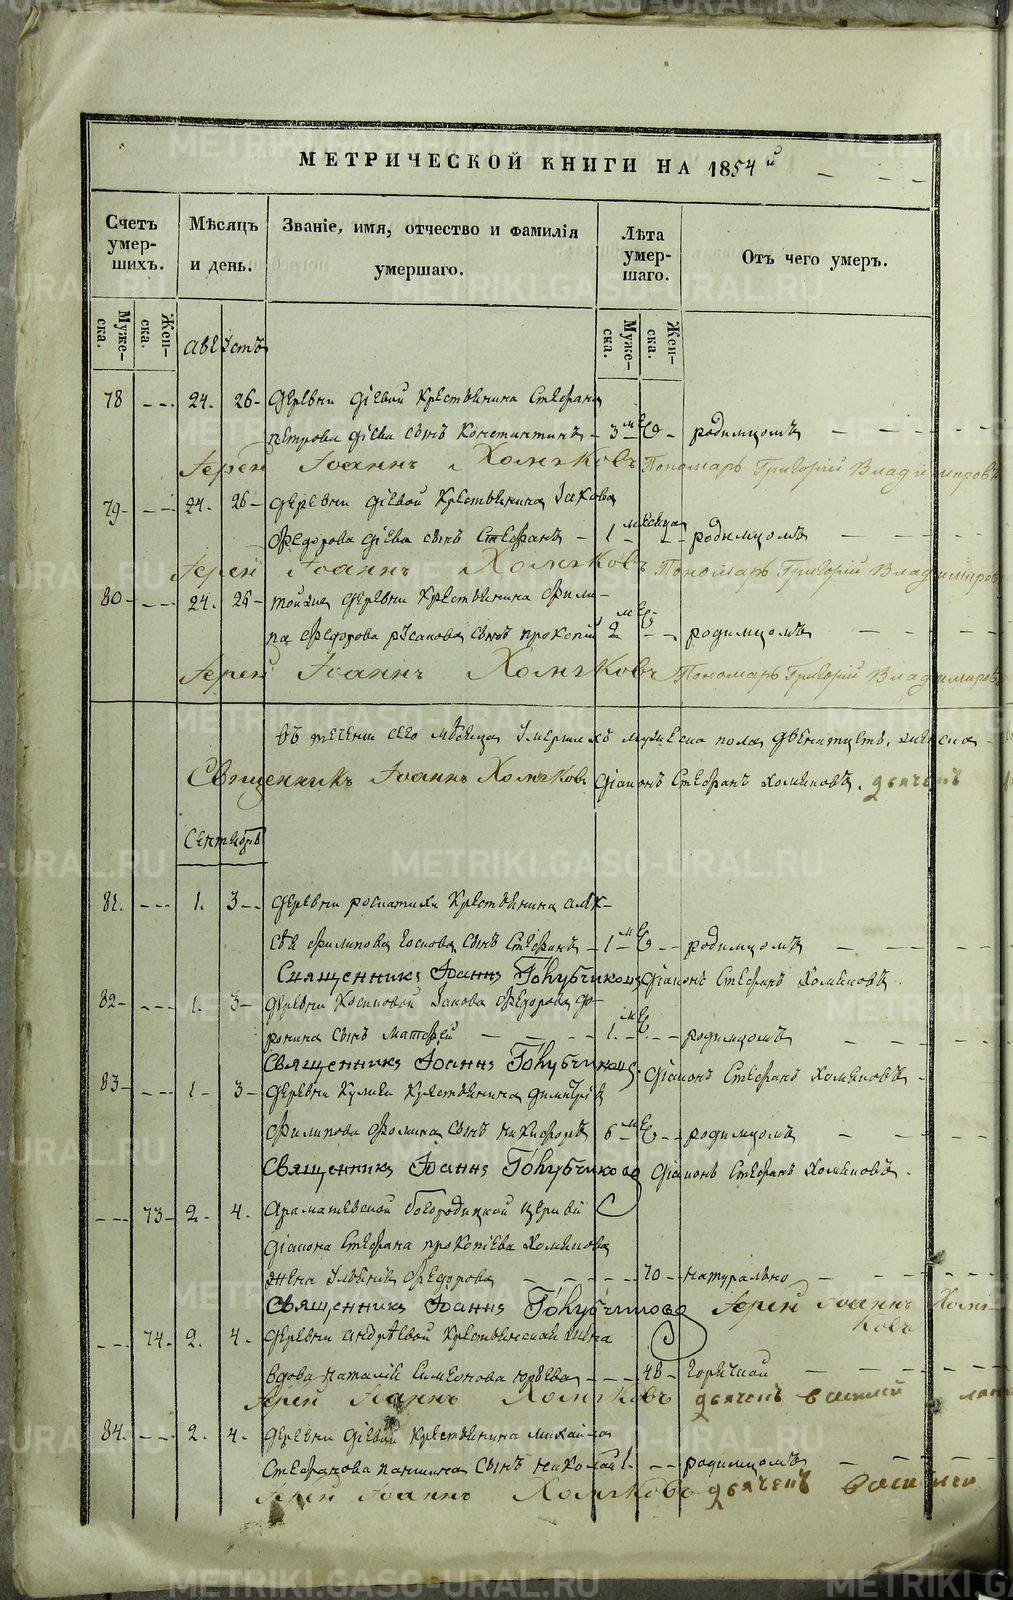 МЕТРИЧЕСКОЙ КНИГИ НА 1854й
Счетъ умер-шихъ. Мѣсяцъ и день. Званіе, имя, отчество и фамилія умершаго. Лѣта умер-шаго. Отъ чего умеръ.
Муже-ска. Жен-ска. Муже-ска. Жен-ска.
Августъ
78 24. 26 Деревни Діевой крестьянина Стефана
Петрова Діева сынъ Константинъ 3 родимцомъ
Іерей Іоаннъ Хомяковъ Пономарь Григорій Владимировъ
79 24. 26 Деревни Діевой крестьянина Іакова
Федорова Діева сынъ Стефанъ 1 месяца родимцомъ
Іерей Іоаннъ Хомяковъ Пономарь Григорій Владимировъ
80 24. 26 тойже деревни крестьянина Фили-
па Федорова Русакова сынъ Прокопій 2 родимцомъ
Іерей Іоаннъ Хомяковъ Пономарь Григорій Владимиров
въ течении сего месяца умершихъ мужеска пола
Священникъ Іоаннъ Хомяковъ Діаконъ Стефанъ Хомяковъ. дьячекъ
Сентябрь
81. 1. 3 Деревни крестьянина Алек-
сѣя Филипова сынъ Стефанъ 1 родимцомъ
Священникъ Іоаннъ Голубчиковъ Діаконъ Стефанъ Хомяковъ.
82 1. 3 Деревни Косиковой Іакова Федорова Фо-
ронина сынъ Матфей 1. родимцомъ
Священникъ Іоаннъ Голубчиковъ Діаконъ Стефанъ Хомяковъ
83 1 3 Деревни крестьянина Димитрія
Филипова Фомина сынъ Никифоръ 6 родимцомъ
Священникъ Іоаннъ Голубчиковъ Діаконъ Стефанъ Хомяковъ.
73 2. 4. Арамашевской Богородицкой церкви
діакона Стефана Прокопіева Хомякова
жена Ульянія Федорова 70 натурально
Священникъ Іоаннъ Голубчиковъ Іерей Іоаннъ Хомя-
ковъ
74. 2. 4. Деревни Андрѣевой крестьянская жена
вдова Наталія Симеонова Юрьева 48 горячкой
Іерей Іоаннъ Хомяковъ дьячекъ Василей
84. 2. 4. Деревни Діевой крестьянина Михаила
Стефанова Паншина сынъ Николай 1. родимцомъ
Іерей Іоаннъ Хомяковъ дьячекъ Василей
METRIKI.GASO-URAL.RU